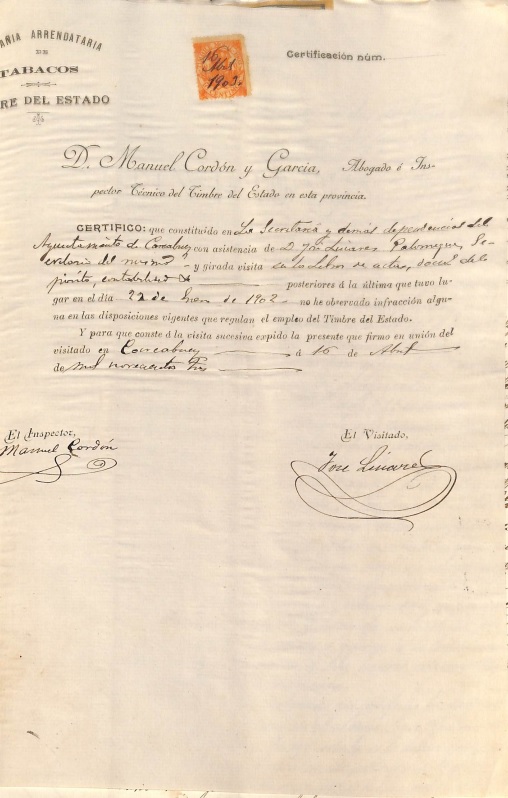 AÑIA ARRENDATARIA
DE
TABACOS
RE DEL ESTADO
Abril
1903.
Certificación núm.
D. Manuel Cordón y García, Abogado é Ins-
pector Técnico del Timbre del Estado en esta provincia.
CERTIFICO: que constituído en La Secretaria y demás dependencias del
Ayuntamiento de Carcabuey con asistencia de D. José Linares Palomeque, Se-
cretario del mismo y girada visita en los libros de actas, docum. del
pósito, contabilidad & posteriores á la última que tuvo lu-
gar en el día 22 de Enero de 1902. no he observado infracción algu-
na en las disposiciones vigentes que regulan el empleo del Timbre del Estado.
Y para que conste á la visita sucesiva expido la presente que firmo en unión del
visitado en Carcabuey á 16 de Abril
de mil novecientos tres
El Inspector,
Manuel Cordón
El Visitado,
Jose Linares